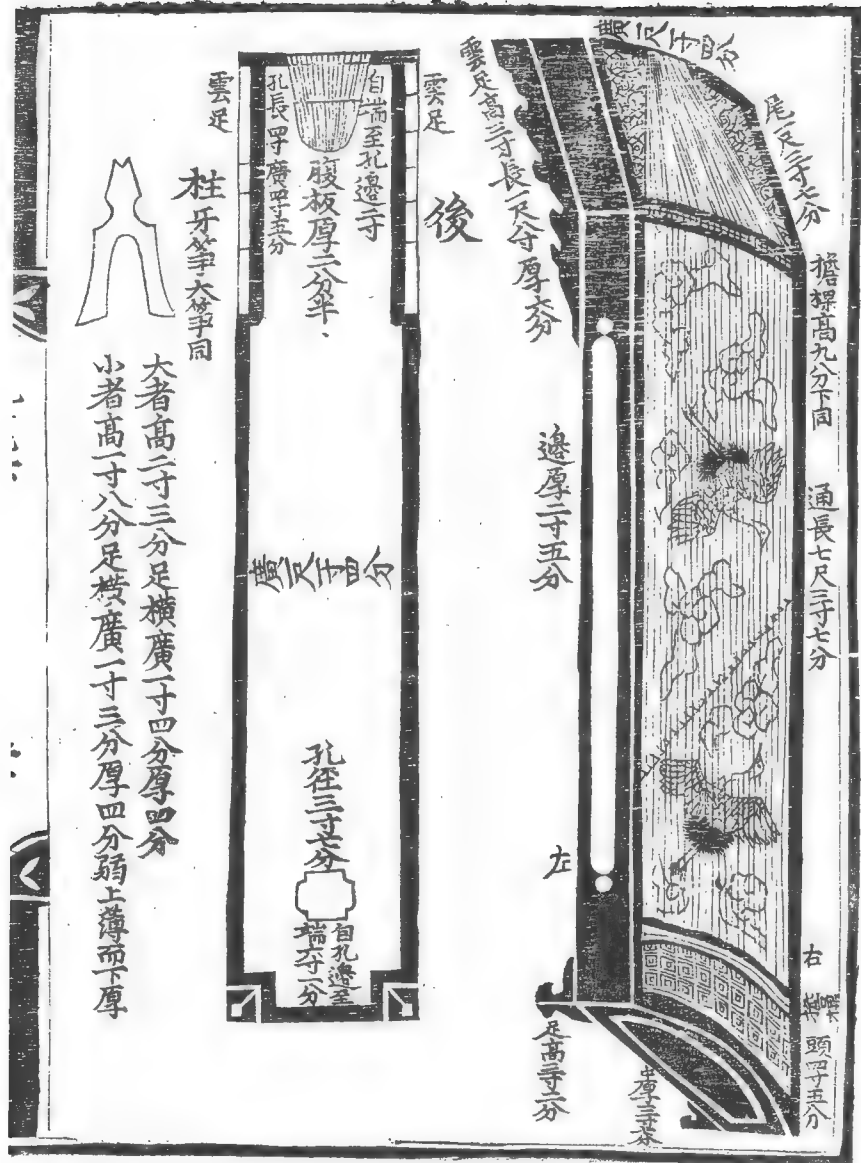 廣一尺一寸四分
尾一尺三寸七分
擔棵高九分下同
通長七尺三寸七分
右
頭四寸五分
雲足高三寸長一尺八寸厚六分
邊厚二寸五分
左
足高二寸二分
後
雲足
自端至孔邊二寸
腹板厚二分半
孔長四寸廣四寸五分
雲足
廣一尺一寸四分
孔徑三寸七分
自孔邊至
端六寸一分
柱牙箏大箏同
大者高二寸三分足橫廣一寸四分厚四分
小者高一寸八分足橫廣一寸三分厚四分弱上薄而下厚